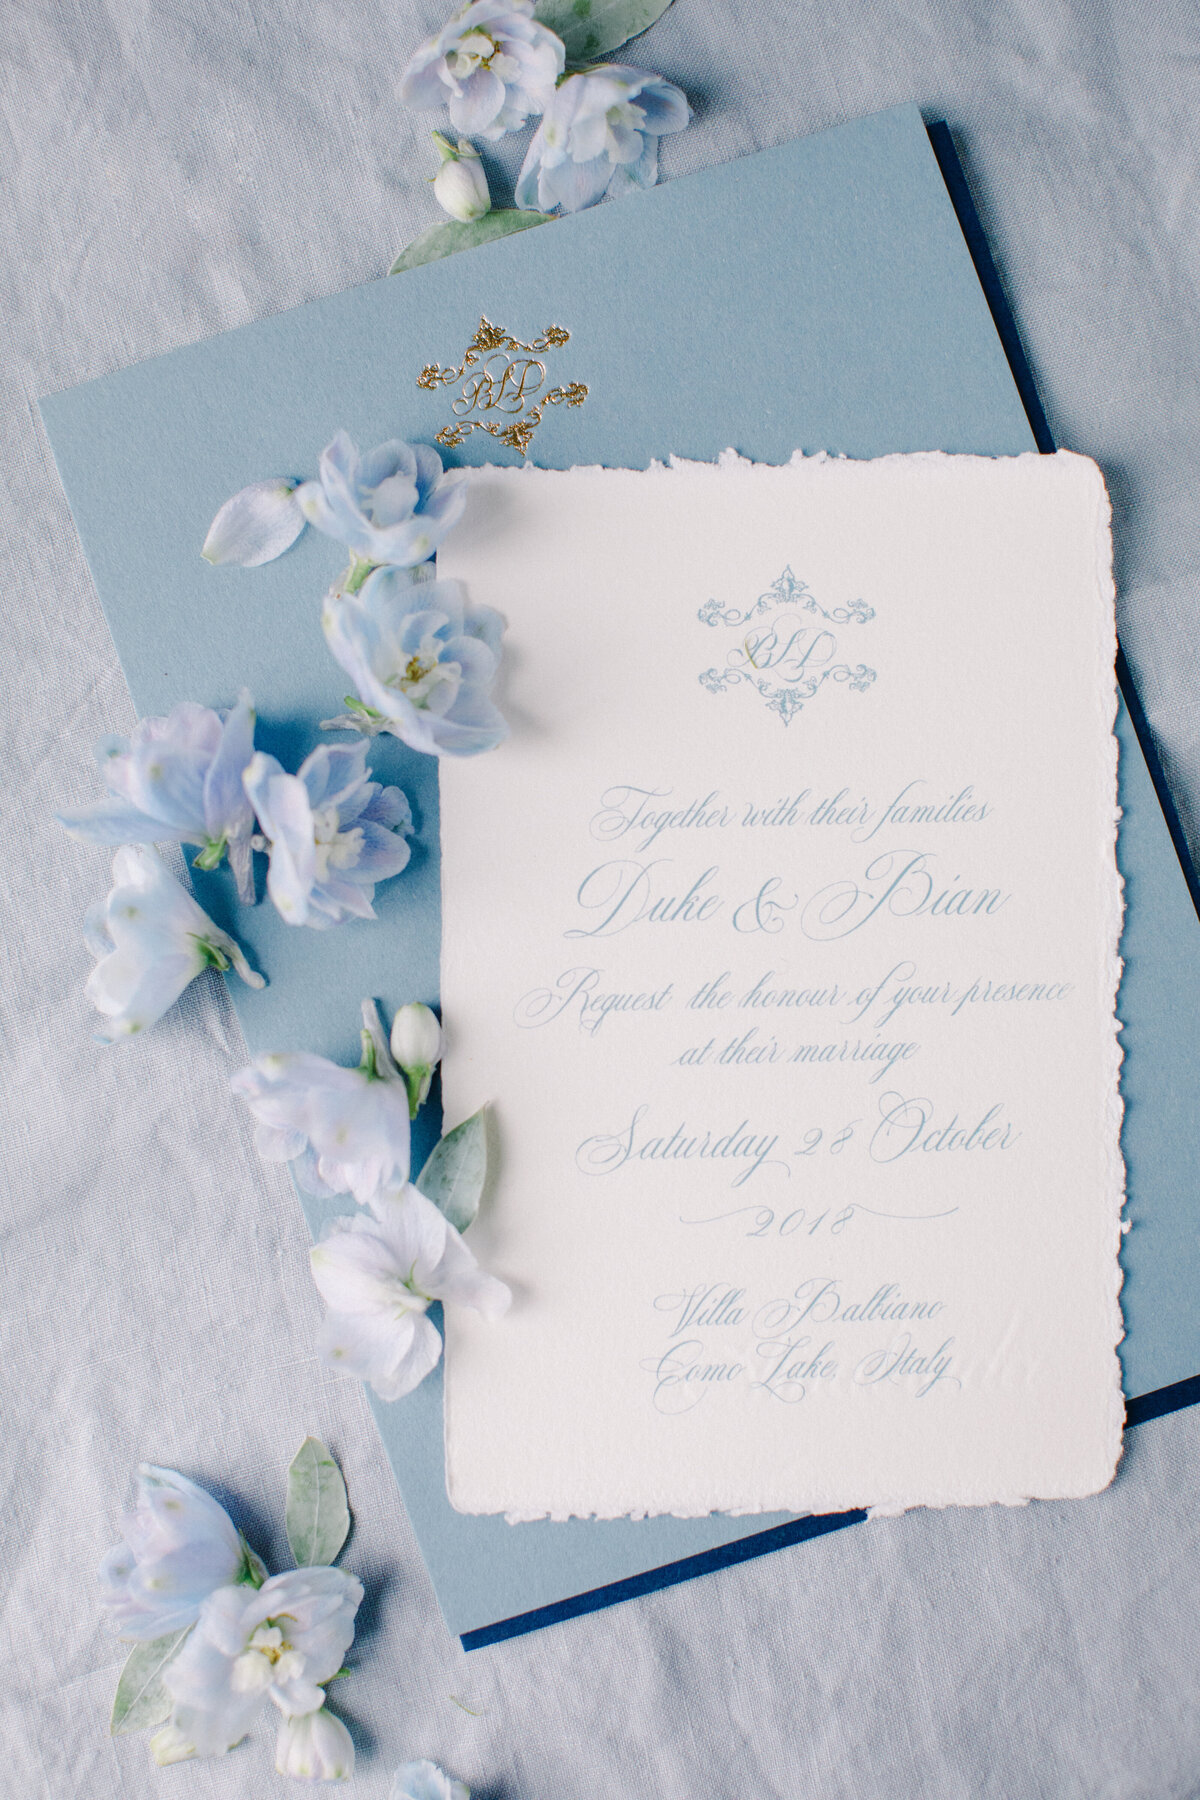 Together with their families
Duke & Bian
Request the honour of your presence
at their marriage
Saturday 28 October
2018
Villa Balbiano
Como Lake, Italy